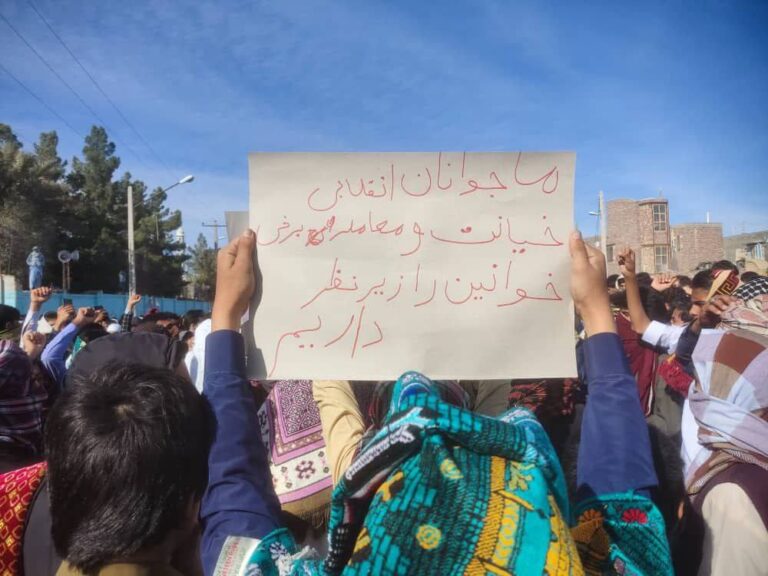 ما جوانان انقلابی
خیانت و معامله برخی
خوانین را زیر نظر
داریم